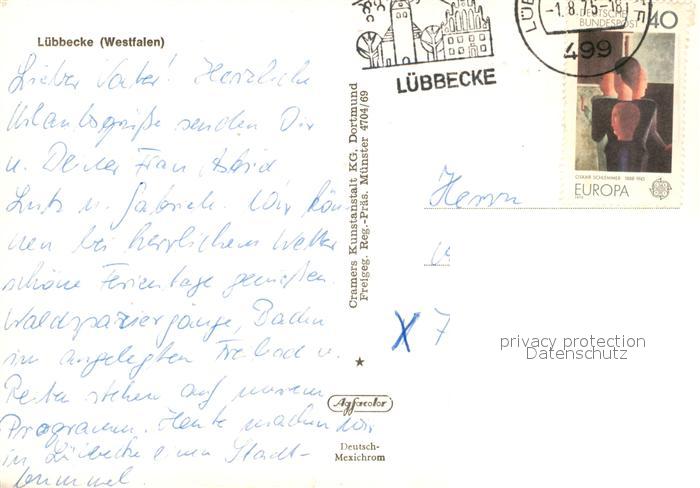 Lübbecke (Westfalen)
Lieber Vater! Herzliche
Urlaubsgrüße senden Dir
u. Deiner Frau Astrid
Lutz u. Gabriele. Wir kön-
nen bei herrlichem Wetter
schöne Ferientage genießen.
Waldspaziergänge, Baden
im angelegten Freibad u.
Reiten stehen auf unserem
Programm. Heute machen wir
in Lübbecke einen Stadt-
bummel.
Cramers Kunstanstalt KG. Dortmund
Freigeg. Reg.-Präs. Münster 4704/69
Agfacolor
Deutsch-
Mexichrom
LÜBBECKE
-1.8.75-18
499
DEUTSCHE
BUNDESPOST
40
OSKAR SCHLEMMER 1888-1943
EUROPA
1975
Herrn
X 7
privacy protection
Datenschutz